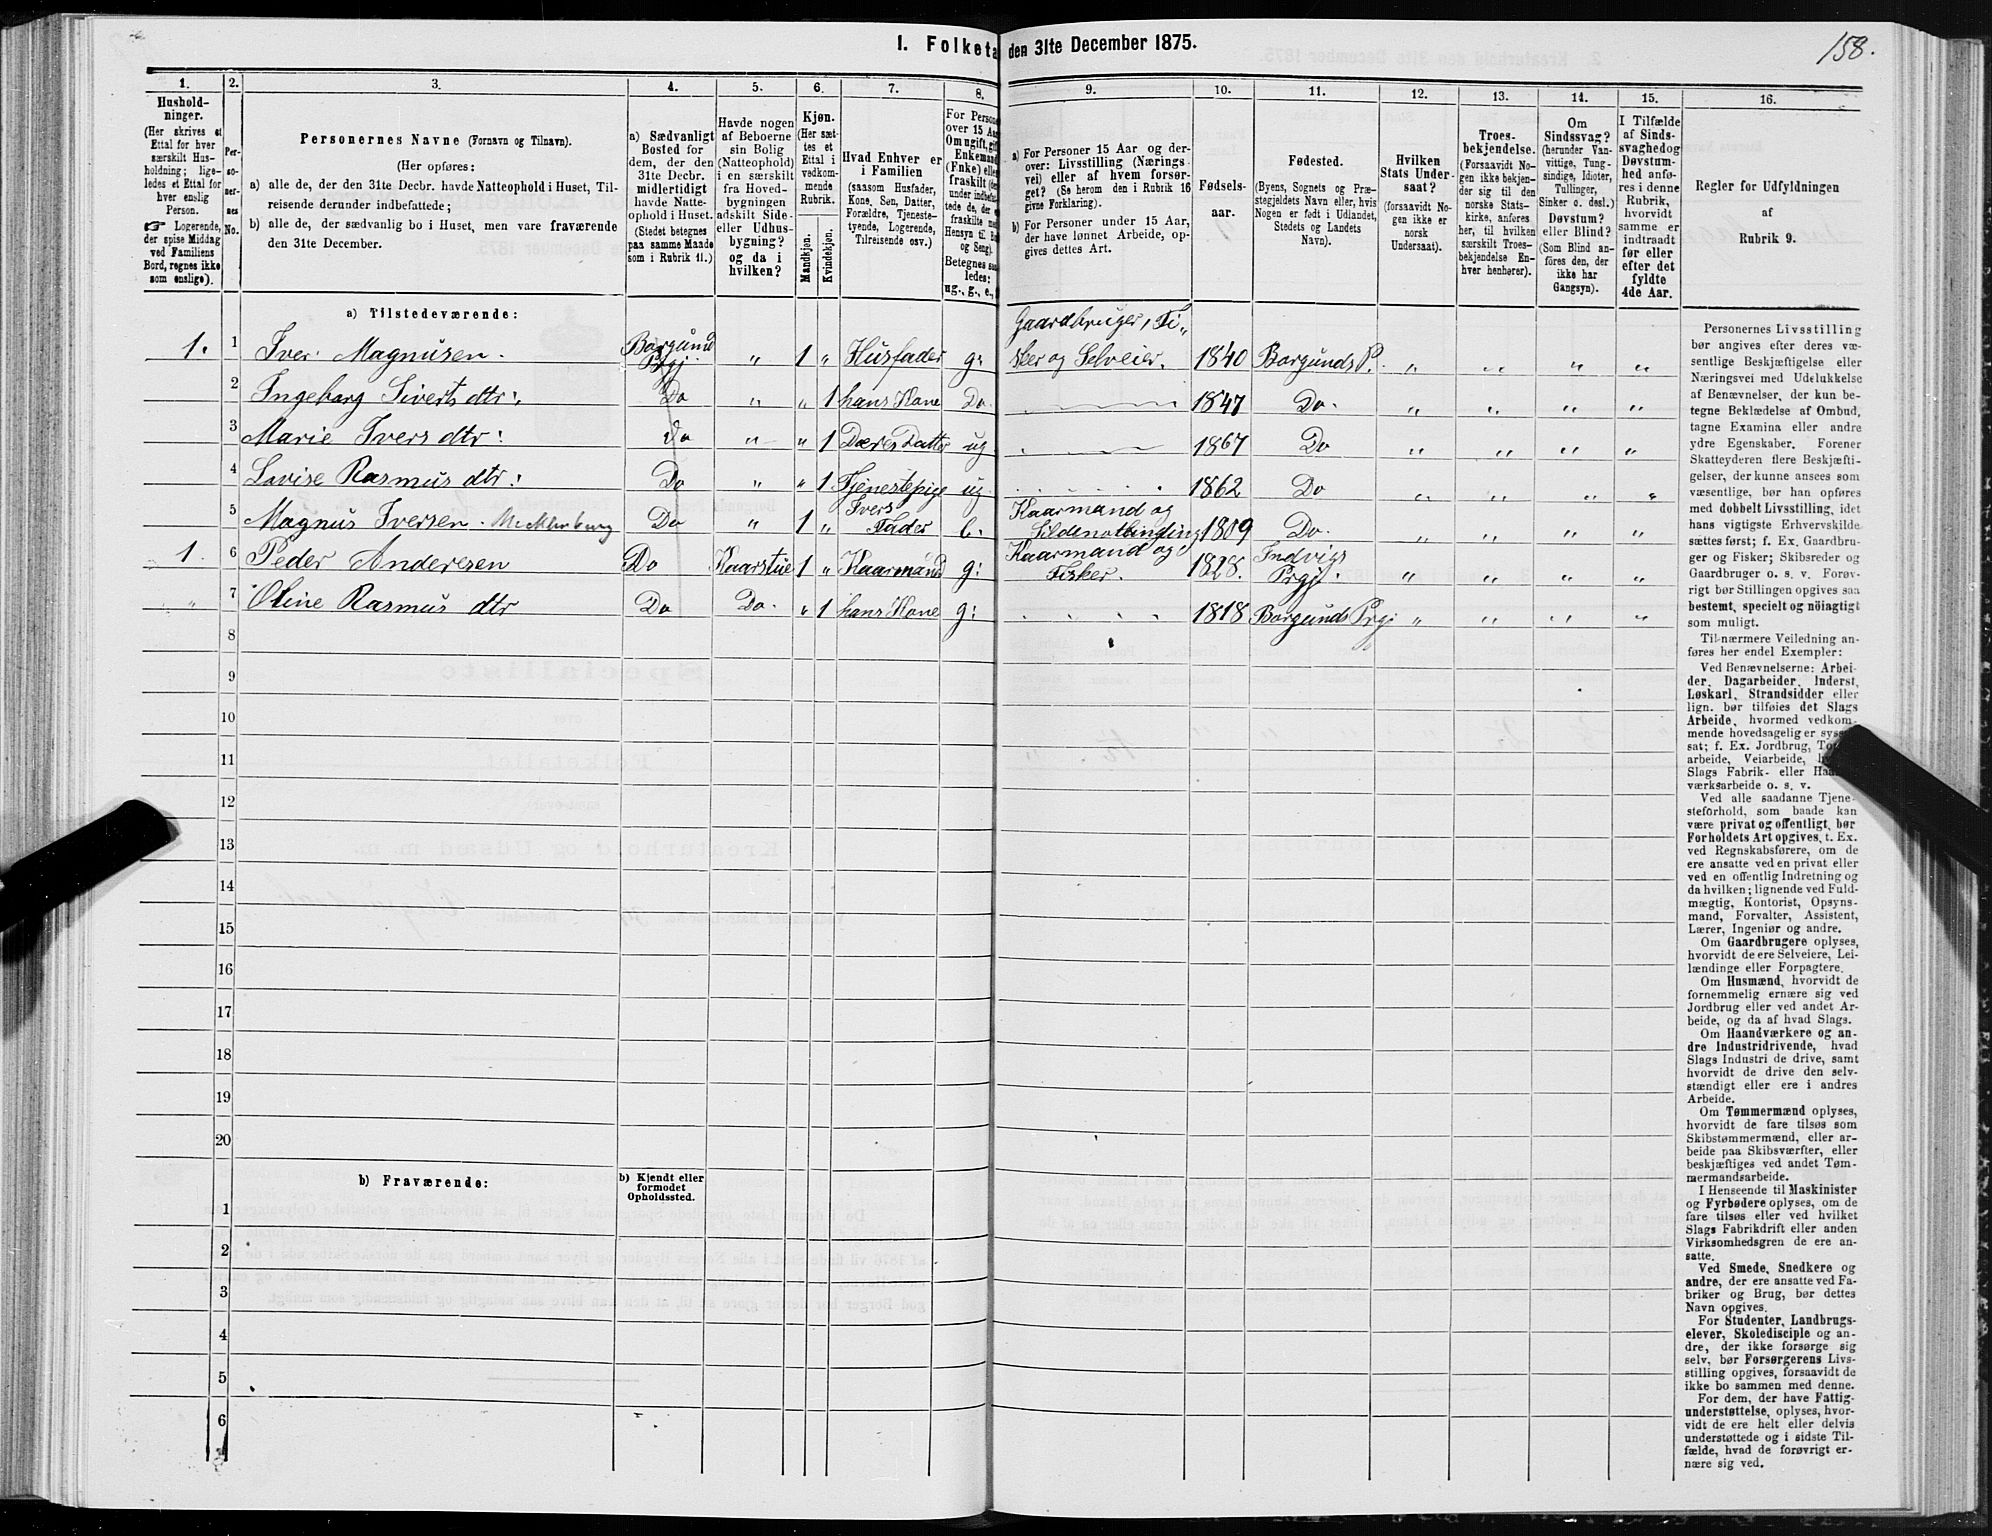 I. Folketa den 31te December 1875.
158.
1. 2. 3. 4. 5. 6. 7. 8. 9. 10. 11. 12. 13. 14. 15. 16.
Hushold-
ninger.
(Her skrives et
Ettal for hver
særskilt Hus-
holdning; lige-
ledes et Ettal for
hver enslig
Person.
☞ Logerende,
der spise Middag
ved Familiens
Bord, regnes ikke
som enslige).
Per-
so-
ner-
nes
No.
Personernes Navne (Fornavn og Tilnavn).
(Her opføres:
a) alle de, der den 31te Decbr. havde Natteophold i Huset, Til-
reisende derunder indbefattede;
b) alle de, der sædvanlig bo i Huset, men vare fraværende
den 31te December.
a) Sædvanligt
Bosted for
dem, der den
31te Decbr.
midlertidigt
havde Natte-
ophold i Huset.
(Stedet betegnes
paa samme Maade
som i Rubrik 11.)
Havde nogen
af Beboerne
sin Bolig
(Natteophold)
i en særskilt
fra Hoved-
bygningen
adskilt Side-
eller Udhus-
bygning?
og da i
hvilken?
Kjøn.
(Her sæt-
tes et
Ettal i
vedkom-
mende
Rubrik.
Mandkjøn.
Kvindekjøn.
Hvad Enhver er
i Familien
(saasom Husfader,
Kone, Søn, Datter,
Forældre, Tjeneste-
tyende, Logerende,
Tilreisende osv.)
For Persone
over 15 Aar
Om ugift, gift
Enkemand
(Enke) eller
fraskilt (der-
under indbefat-
tede de, der e
fraskilte med
Hensyn til Bo
og Seng).
Betegnes saa-
ledes:
ug., g., e.,
a) For Personer 15 Aar og der-
over: Livsstilling (Nærings-
vei) eller af hvem forsør-
get? (Se herom den i Rubrik 16
givne Forklaring).
b) For Personer under 15 Aar,
der have lønnet Arbeide, op-
gives dettes Art.
Fødsels-
aar.
Fødested.
(Byens, Sognets og Præ-
stegjeldets Navn eller, hvis
Nogen er født i Udlandet,
Stedets og Landets
Navn).
Hvilken
Stats Under-
saat?
(forsaavidt No-
gen ikke er
norsk
Undersaat).
Troes-
bekjendelse.
(Forsaavidt No-
gen ikke bekjen-
der sig til den
norske Stats-
kirke, anføres
her, til hvilken
særskilt Troes-
bekjendelse En-
hver henhører).
Om
Sindssvag?
(herunder Van-
vittige, Tung-
sindige, Idioter,
Tullinger,
Sinker o. desl.)
Døvstum?
eller Blind?
(Som Blind an-
føres den, der
ikke har
Gangsyn).
I Tilfælde
af Sinds-
svaghed og
Døvstum-
hed anfø-
res i denne
Rubrik,
hvorvidt
samme er
indtraadt
før eller
efter det
fyldte
4de Aar.
Regler for Udfyldningen
af
Rubrik 9.
a) Tilstedeværende:
1. 1 Iver Magnusen. Borgund Prgj. „ 1 „ Husfader g: Gaardbruger, Fi„
sker og Selveier. 1840 Borgunds P. „ „ „ „
2 Ingeborg Siverts dtr: Do „ „ 1 hans Kone Do. 1847 Do. „ „ „ „
3 Marie Ivers dtr: Do „ „ 1 Deres Datter ug 1867 Do „ „ „ „
4 Lovise Rasmus dtr: Do „ „ 1 Tjenestepige ug 1862 Do „ „ „ „
5 Magnus Iversen. Mecklenburg Do „ 1 „ Ivers Fader e: Kaarmand og
Sildenotbinding 1809 Do. „ „ „ „
1 6 Peder Andersen Do Kaarstue 1 „ Kaarmand g: Kaarmand og
Fisker. 1828. Indvigs Prgj. „ „ „ „
„ 7 Oline Rasmus dtr Do Do. „ 1 hans Kone g: 1818 Borgunds Prgj „ „ „ „
8
9
10
11
12
13
14
15
16
17
18
19
20
b) Fraværende:
b) Kjendt eller
formodet
Opholdssted.
1
2
3
4
5
6
Personernes Livsstilling
bør angives efter deres væ-
sentlige Beskjæftigelse eller
Næringsvei med Udelukkelse
af Benævnelser, der kun be-
tegne Beklædelse af Ombud,
tagne Examina eller andre
ydre Egenskaber. Forener
Skatteyderen flere Beskjæfti-
gelser, der kunne ansees som
væsentlige, bør han opføres
med dobbelt Livsstilling, idet
hans vigtigste Erhvervskilde
sættes først; f. Ex. Gaardbru-
ger og Fisker; Skibsreder og
Gaardbruger o. s. v. Forøv-
rigt bør Stillingen opgives saa
bestemt, specielt og nöiagtigt
som muligt.
Til nærmere Veiledning an-
føres her endel Exempler:
Ved Benævnelserne: Arbei-
der, Dagarbeider, Inderst,
Løskarl, Strandsidder eller
lign. bør tilføies det Slags
Arbeide, hvormed vedkom-
mende hovedsagelig er sys
sat; f. Ex. Jordbrug,
arbeide, Veiarbeide,
Slags Fabrik- eller
værksarbeide o. s. v.
Ved alle saadanne Tjene-
steforhold, som baade kan
være privat og offentligt, bør
Forholdets Art opgives, t. Ex.
ved Regnskabsførere, om de
ere ansatte ved en privat eller
ved en offentlig Indretning og
da hvilken; lignende ved Fuld-
mægtig, Kontorist, Opsyns-
mand, Forvalter, Assistent,
Lærer, Ingeniør og andre.
Om Gaardbrugere oplyses,
hvorvidt de ere Selveiere, Lei-
lændinge eller Forpagtere.
Om Husmænd, hvorvidt de
fornemmelig ernære sig ved
Jordbrug eller ved andet Ar-
beide, og da af hvad Slags.
Om Haandværkere og an-
dre Industridrivende, hvad
Slags Industri de drive, samt
hvorvidt de drive den selv-
stændigt eller ere i andres
Arbeide.
Om Tømmermænd oplyses,
hvorvidt de fare tilsøs som
Skibstømmermænd, eller ar-
beide paa Skibsværfter, eller
beskjæftiges ved andet Tøm-
mermandsarbeide.
I Henseende til Maskinister
og Fyrbødere oplyses, om de
fare tilsøs eller ved hvilket
Slags Fabrikdrift eller anden
Virksomhedsgren de ere an-
satte.
Ved Smede, Snedkere og
andre, der ere ansatte ved Fa-
briker og Brug, bør dettes
Navn opgives.
For Studenter, Landbrugs-
elever, Skoledisciple og an-
dre, der ikke forsørge sig
selv, bør Forsørgerens Livs-
stilling opgives, forsaavidt de
ikke bo sammen med denne.
For dem, der have Fattig-
understøttelse, oplyses, hvor-
vidt de ere helt eller delvis
understøttede og i sidste Til-
fælde, hvad de forøvrigt er-
nære sig ved.